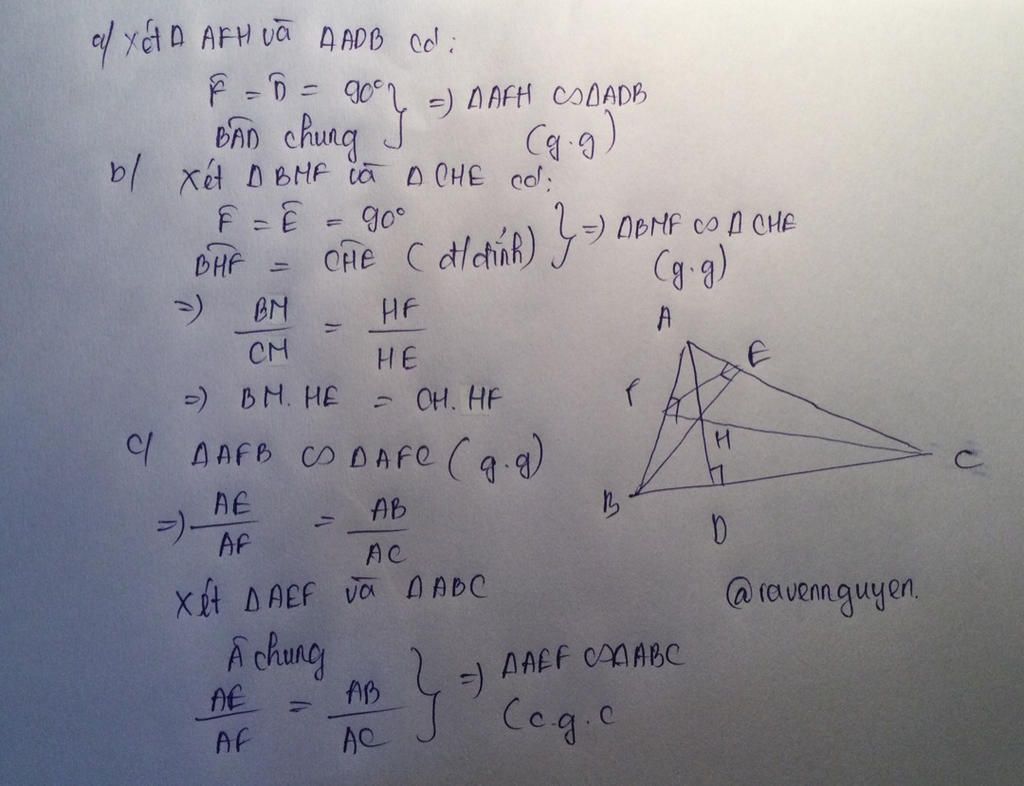 a/ Xét Δ AFH và ΔADB có:
F̂ = D̂ = 90°
BAD chung
=) ΔAFH ∽ ΔADB
(g.g)
b/ Xét ΔBHF và Δ CHE có:
F̂ = Ê = 90°
BHF = CHE (đ/đỉnh)
=) ΔBHF ∽ Δ CHE
(g.g)
=) BH/CH = HF/HE
=) BH. HE = CH. HF
c/ ΔAFB ∽ ΔAFC (g.g)
=) AE/AF = AB/AC
Xét ΔAEF và ΔABC
Â chung
AE/AF = AB/AC
=) ΔAEF ∽ ΔABC
(c.g.c
A
E
F
H
C
B
D
@ravennguyen.